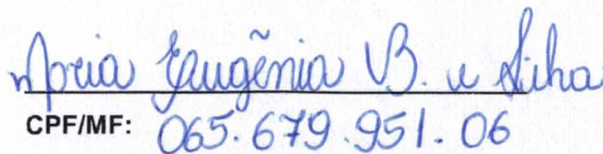 Maria Eugênia B. e Silva
CPF/MF: 065.679.951.06